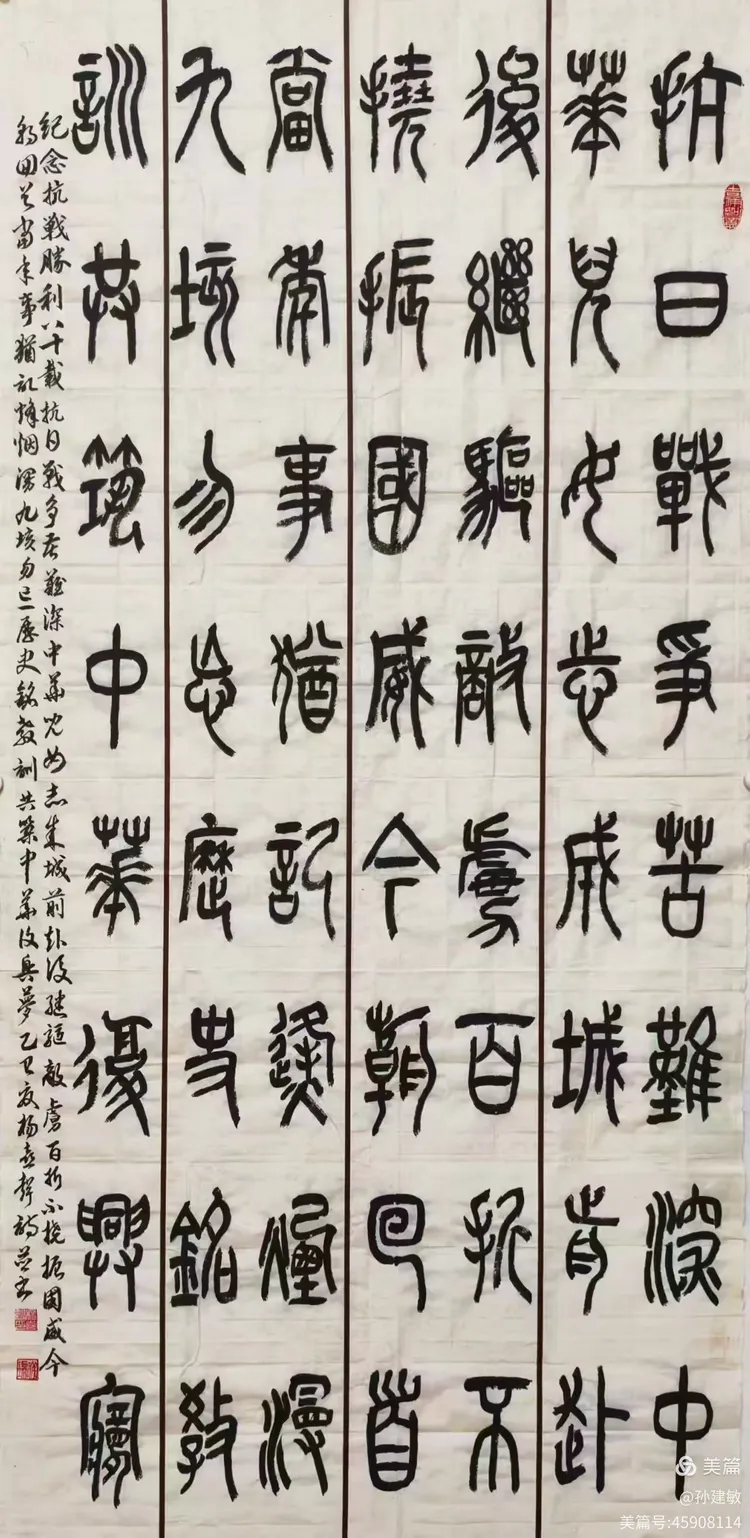 抗日戰爭苦難深中
華兒女志成城前赴
後繼驅敵虜百折不
撓振國威今朝回首
當年事猶記烽煙漫
九垓勿忘歷史銘教
訓共築中華復興夢
紀念抗戰勝利八十載抗日戰爭苦難深中華兒女志成城前赴後繼驅敵虜百折不撓振國威今
朝回首當年事猶記烽烟漫九垓勿忘歷史銘教訓共築中華復興夢乙巳夏楊詩並書
美篇
@孙建敏
美篇号:45908114